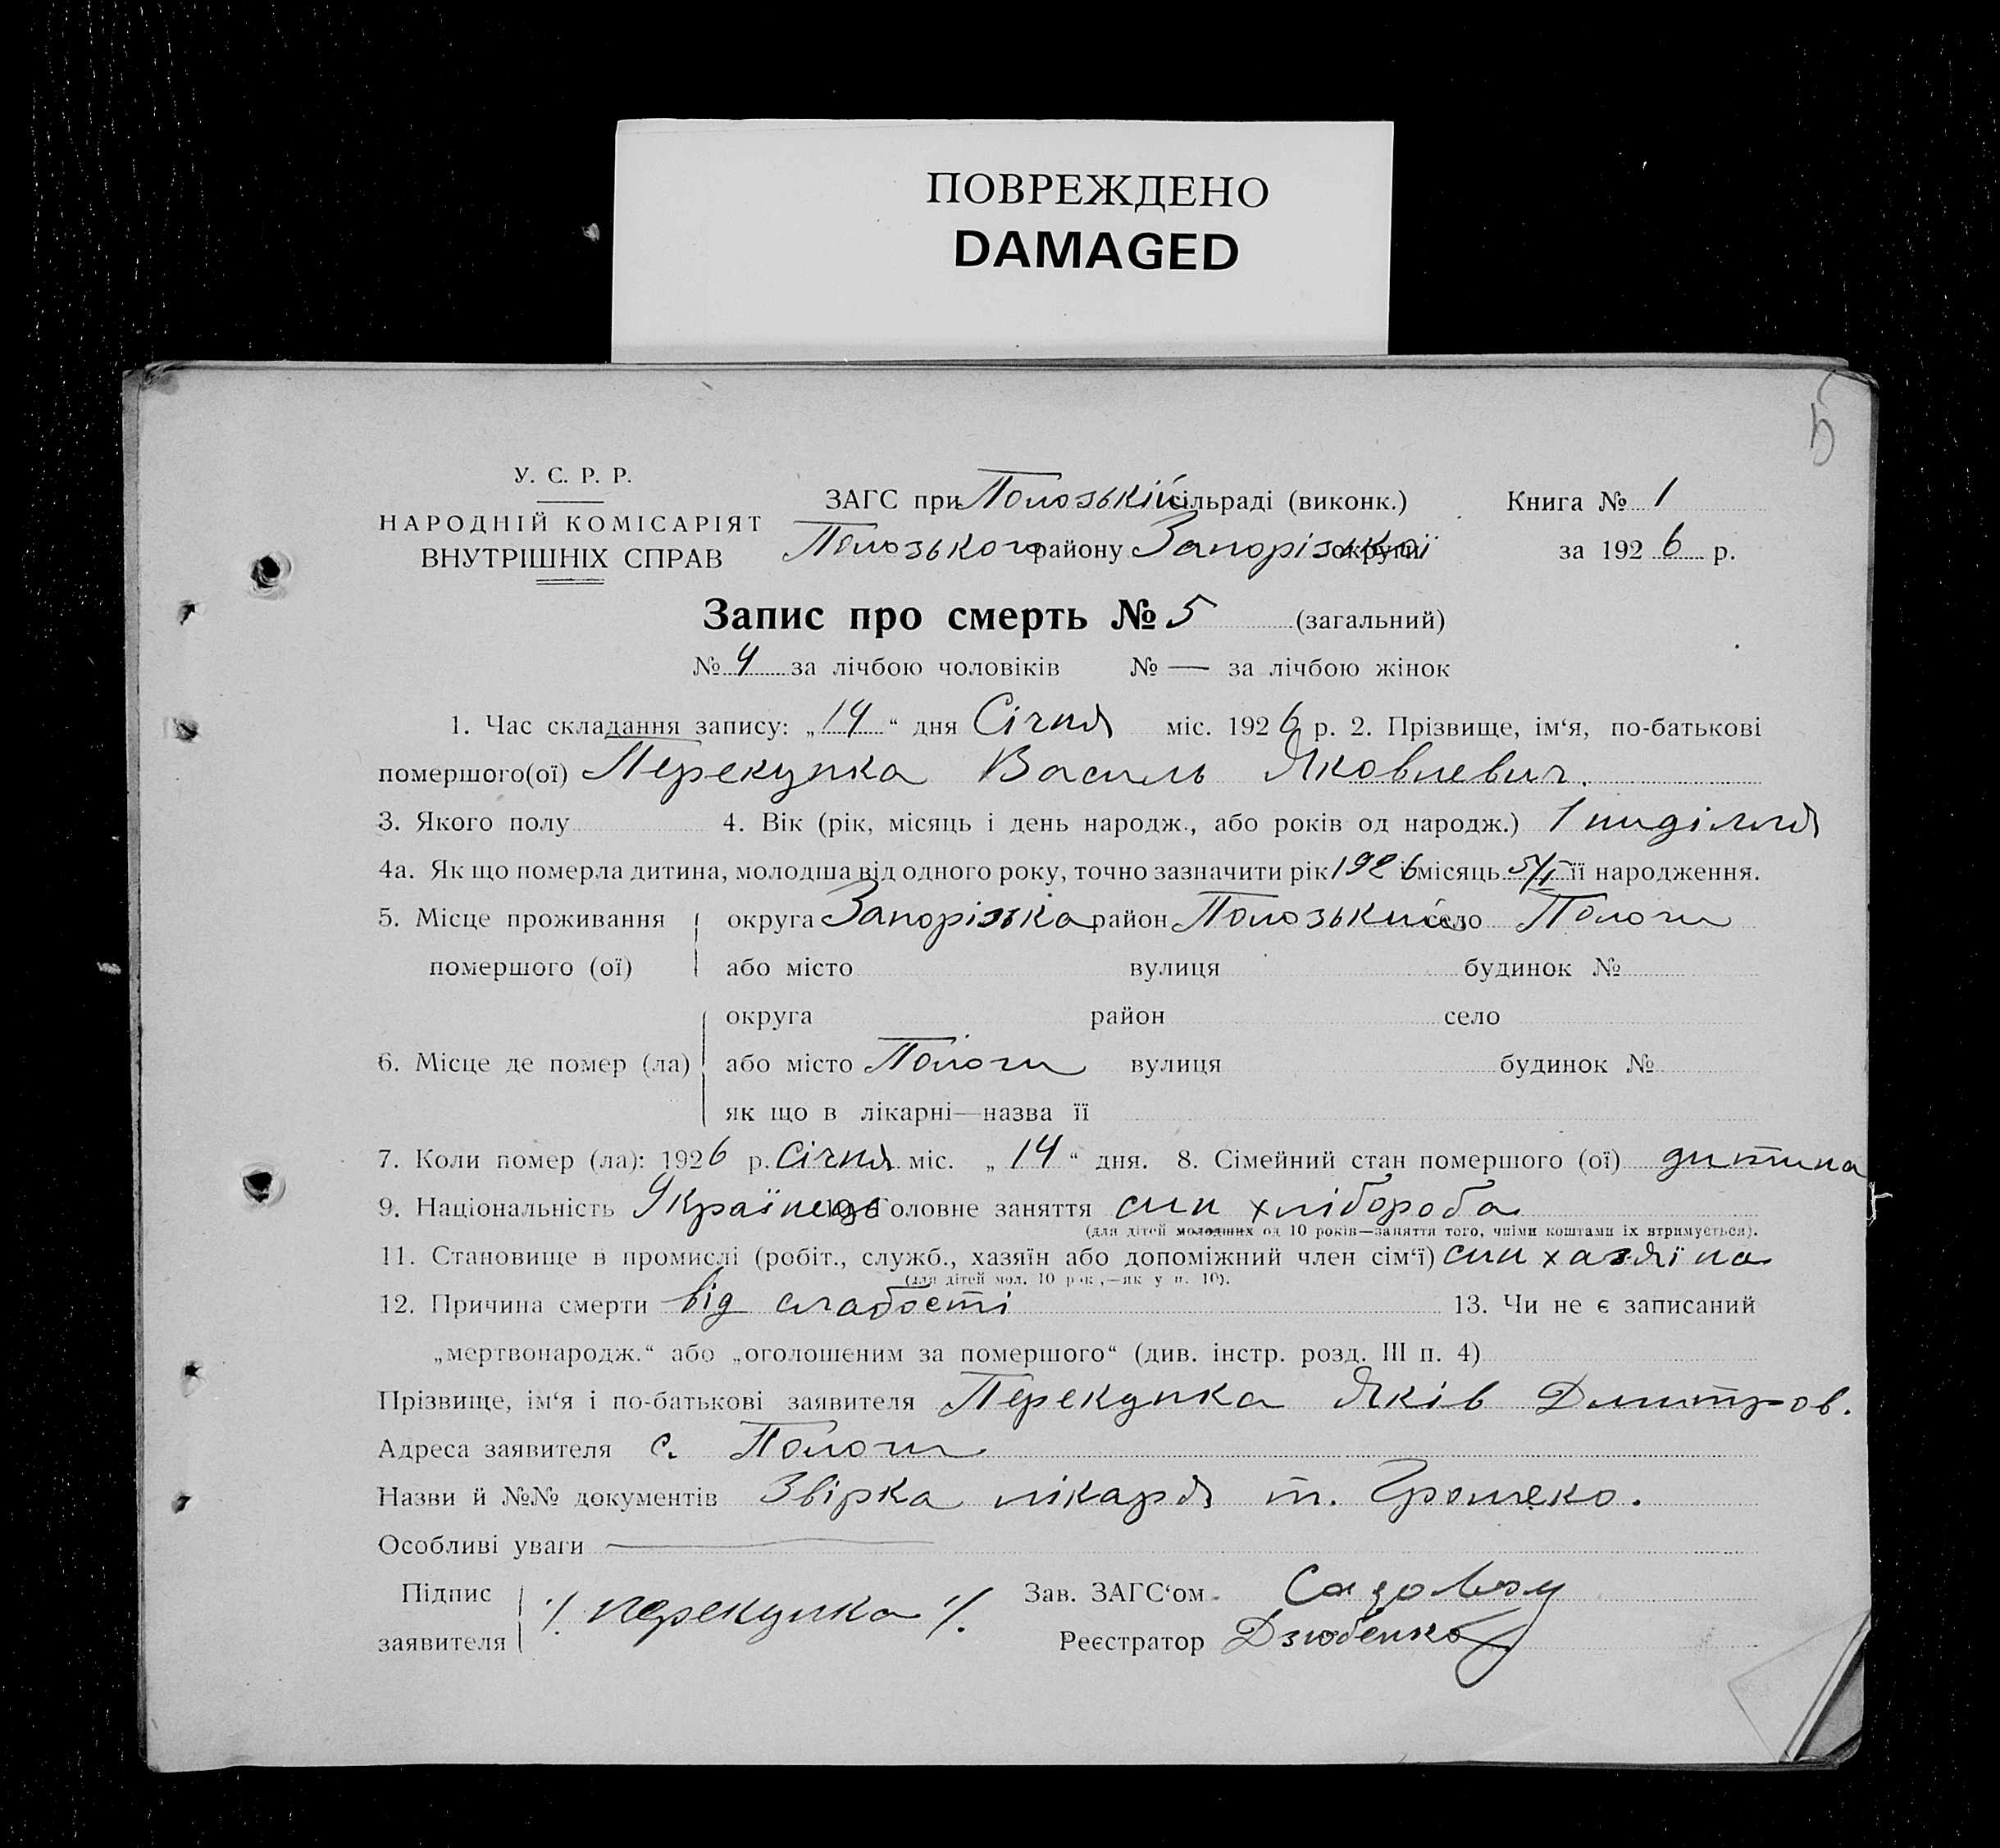 ПОВРЕЖДЕНО
DAMAGED
5
У. С. Р. Р.
НАРОДНІЙ КОМІСАРІЯТ
ВНУТРІШНІХ СПРАВ
ЗАГС при Пологзькій сільраді (виконк.) Книга № 1
Пологзького району Запорізької округи за 1926 р.
Запис про смерть № 5 (загальний)
№ 4 за лічбою чоловіків № — за лічбою жінок
1. Час складання запису: „14“ дня Січня міс. 1926 р. 2. Прізвище, ім‘я, по-батькові
помершого(ої) Перекупка Василь Яковлевич.
3. Якого полу 4. Вік (рік, місяць і день народж., або років од народж.) 1 ниділля
4а. Як що померла дитина, молодша від одного року, точно зазначити рік 1926 місяць 5/I її народження.
5. Місце проживання округа Запорізька район Полозький село Пологи
помершого (ої) або місто вулиця будинок №
округа район село
6. Місце де помер (ла) або місто Пологи вулиця будинок №
як що в лікарні—назва її
7. Коли помер (ла): 1926 р. Січня міс. „14“ дня. 8. Сімейний стан помершого (ої) дитина
9. Національність Українець 10. Головне заняття син хлібороба
(для дітей молодших од 10 років—заняття того, чиїми коштами їх втримується).
11. Становище в промислі (робіт., служб., хазяїн або допоміжний член сім‘ї) син хазяїна
(для дітей мол. 10 рок.,—як у п. 10).
12. Причина смерти від слабості 13. Чи не є записаний
„мертвонародж.“ або „оголошеним за помершого“ (див. інстр. розд. III п. 4)
Прізвище, ім‘я і по-батькові заявителя Перекупка Яків Дмитров.
Адреса заявителя с. Пологи
Назви й №№ документів Звірка лікаря т.
Особливі уваги —
Підпис Зав. ЗАГС‘ом
заявителя /. Перекупка /. Реєстратор Дзюбенко